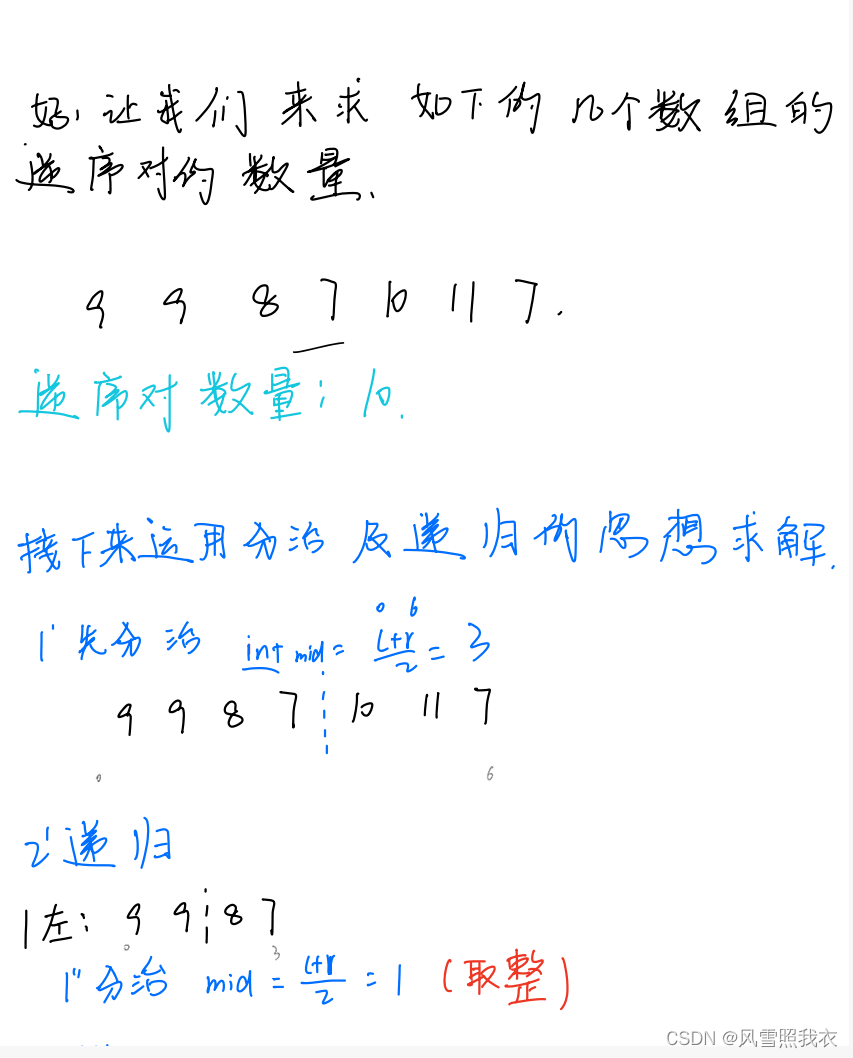 好,让我们来求如下的几个数组的
逆序对的数量.
9 9 8 7 10 11 7.
逆序对数量: 10.
接下来运用分治及递归的思想求解.
0 6
1' 先分治 int mid = (l+r)/2 = 3
9 9 8 7 10 11 7
0 6
2' 递归
1左: 9 9 8 7
0 3
1'' 分治 mid = (l+r)/2 = 1 (取整)
CSDN @风雪照我衣